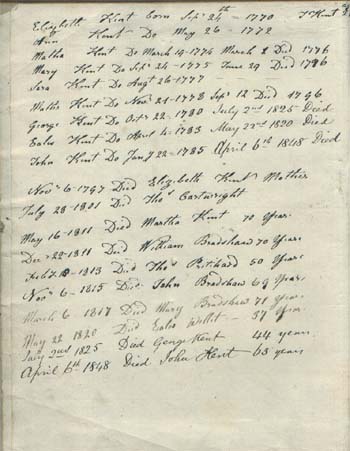 Elizabeth Kent born Sepr 24th - 1770 T Kent
Ann Kent Do May 26 - 1772
Martha Kent Do March 14-1774 March 2 Died 1776
Mary Kent Do Sepr 24 - 1775 June 29 Died 1796
Sara Kent Do Augt 26-1777
Martha Kent Do Novr 21-1778 Sepr 12 Died 1796
George Kent Do Octr 22 - 1780 July 2nd 1825 Died
Eabs Kent Do April 4-1783 May 22nd 1820 Died
John Kent Do Jany 22-1785 April 6th 1848 Died
Novr 6-1797 Died Elizabeth Kent Mother
July 28-1801 Died Thos Cartwright
May 16-1811 Died Martha Kent 70 Years
Decr 22-1811 Died William Bradshaw 70 Years
Feby 18-1813 Died Thos Pritchard 50 Years
Novr 6-1815 Died John Bradshaw 69 Years
March 6 1817 Died Mary Bradshaw 71 Years
May 22 1820 Died Eabs - 37 Years
July 2nd 1825 Died George Kent 44 years
April 6th 1848 Died John Kent 63 years